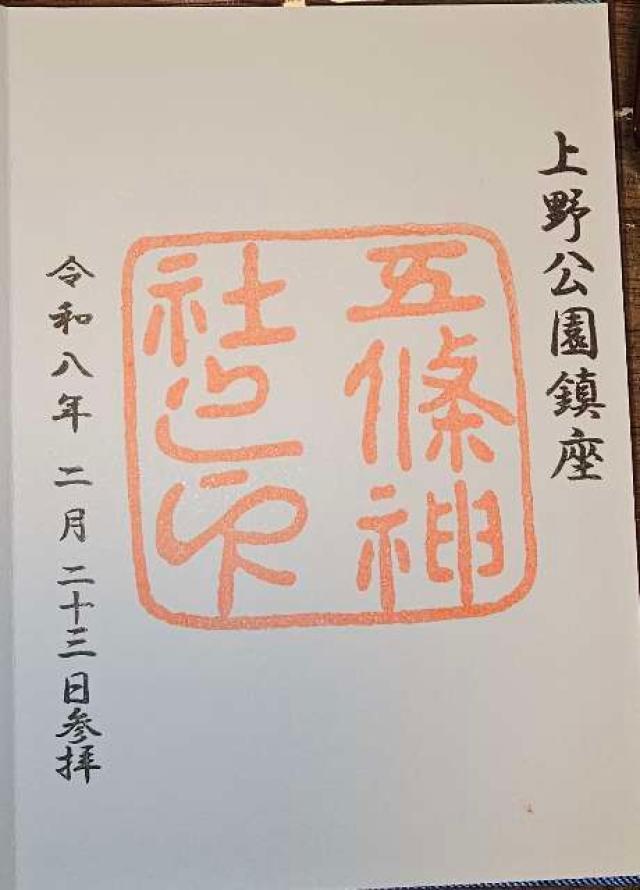 上野公園鎮座
五條神
社之印
令和八年二月二十三日参拝